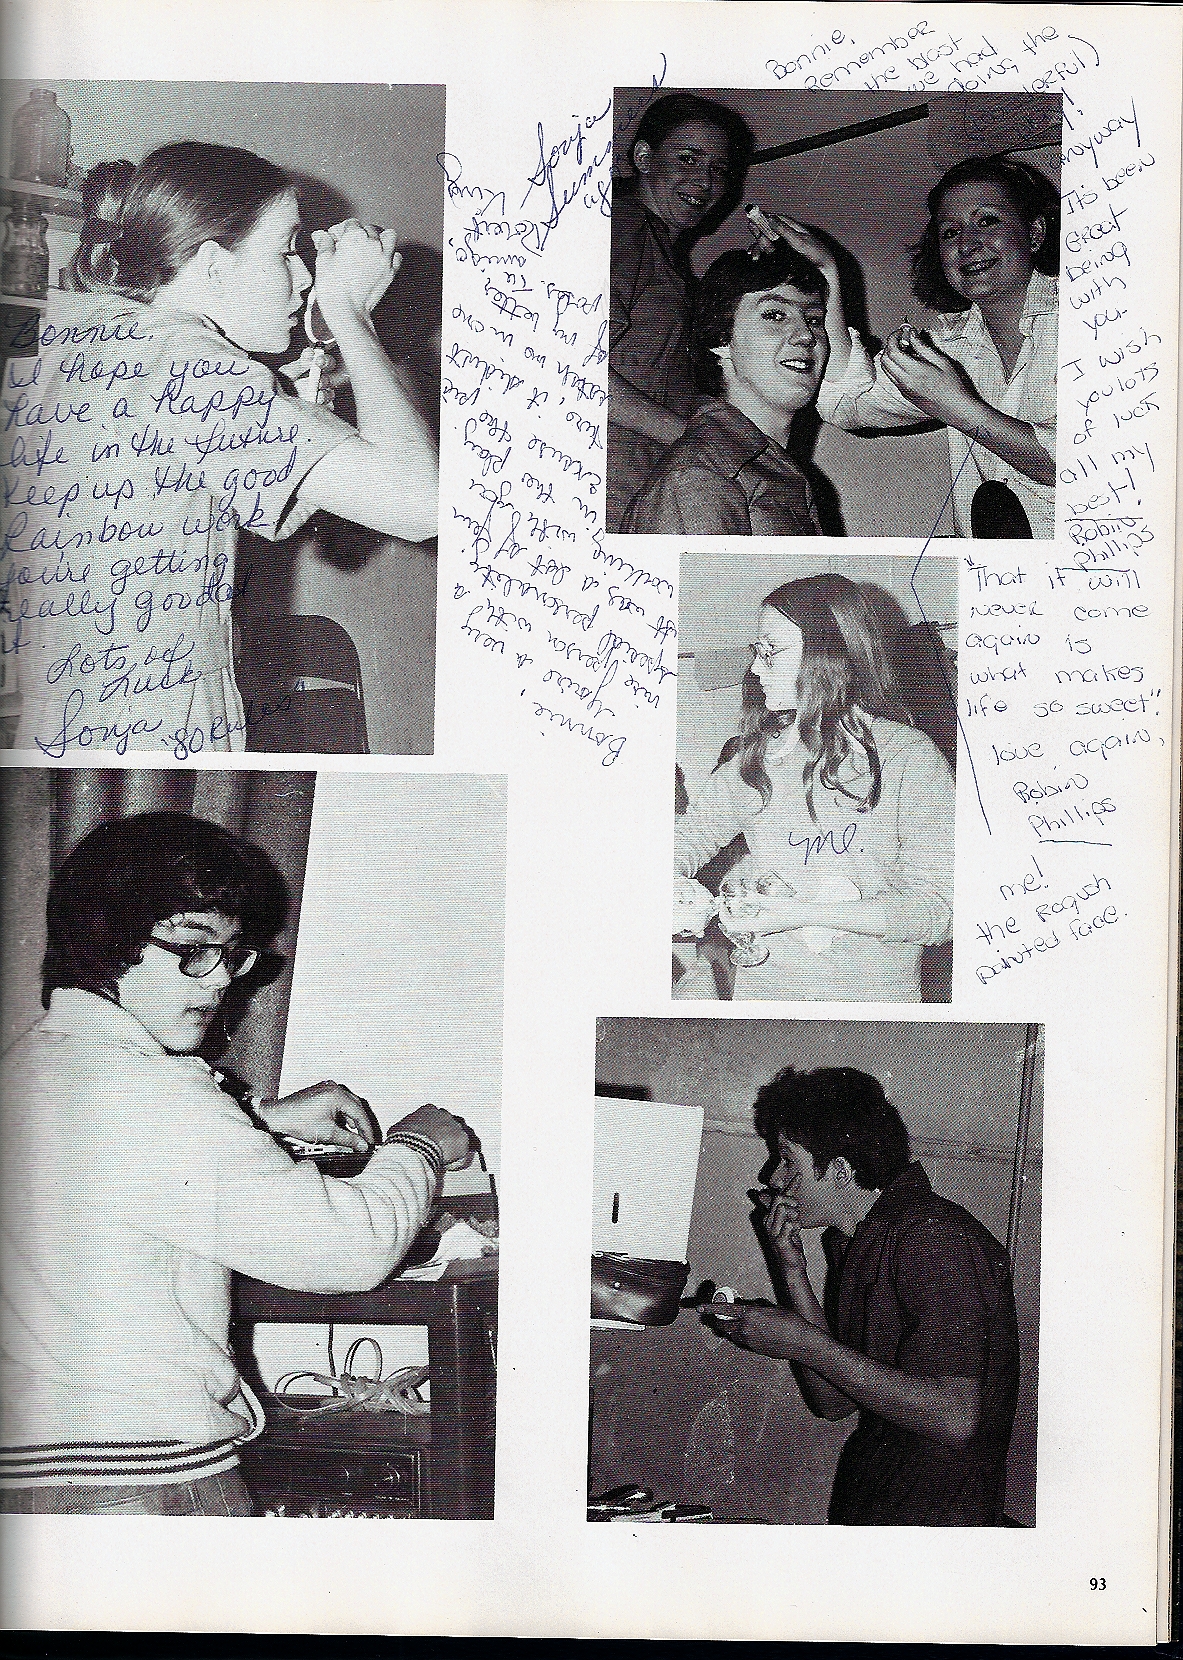 Bonnie,
I hope you
have a happy
life in the future.
Keep up the good
Rainbow work
you're getting
really good at
it.
Lots of
Luck
Sonja
'80 Rules
Sonja
Bonnie,
You're a very
nice person with a
special personality.
It was a lot of fun
working with you
in the play.
Excuse the pen
this, it didn't
reach me in one
of my better
moods. Tu
amigo,
Robert
King
Bonnie,
Remember
the blast
we had
doing the
(wonderful)
play!
Anyway
It's been
Great
being
with
you.
I wish
you lots
of luck
all my
best!
Robin
Phillips
"That it will
never come
again is
what makes
life so sweet".
love again,
Robin
Phillips
me!
the Roguish
painted face.
Me.
93